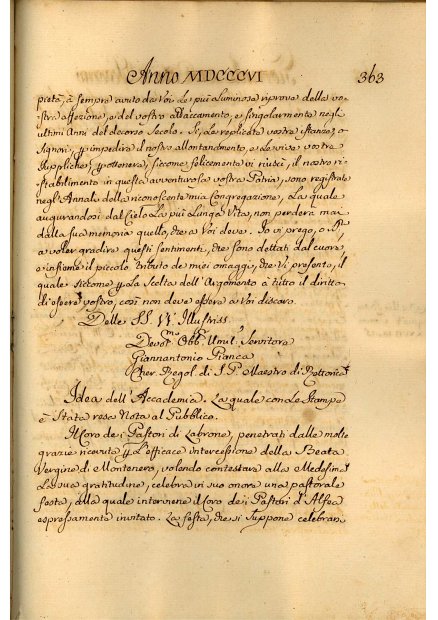 Anno MDCCCVI 363
pietà, à sempre avuto da Voi le più luminose riprove della vo-
stra affezione, e del vostro attaccamento, e singolarmente negli
ultimi Anni del decorso Secolo. Sì, le replicate vostre istanze, o
Signori, p impedire il nostro allontanamento, e le vive vostre
suppliche, p ottenere, siccome felicemente vi riuscì, il nostro ri-
stabilimento in questa avventurosa vostra Patria, sono registrate
negl'Annali della riconoscente mia Congregazione, la quale
augurandosi dal Cielo la più lunga Vita, non perderà mai
dalla sua memoria quello, che a Voi deve. Io vi prego, o
a voler gradire questi sentimenti, che sono dettati dal cuore
e insieme il piccolo tributo de miei omaggi, che Vi presento, il
quale siccome p la scelta dell'Argomento à tutto il diritto
di essere vostro, così non deve essere a Voi discaro.
Delle SS. VV. Illustriss.
Devot.mo Obb. Umil. Servitore
Giannantonio Pianca
Cher. Regol. di S. P. Maestro di Rettorica
Idea dell'Accademia. La quale con le Stampe
è Stata resa Nota al Pubblico.
Il Coro de i Pastori di Labrone, penetrati dalle molte
grazie ricevute p l'efficace intercessione della Beata
Vergine di Montenero, volendo contestare alla Medesima
la sua gratitudine, celebra in suo onore una pastorale
festa, alla quale interviene il Coro de i Pastori d'Alfea
espressamente invitato. La festa, che si suppone celebran-